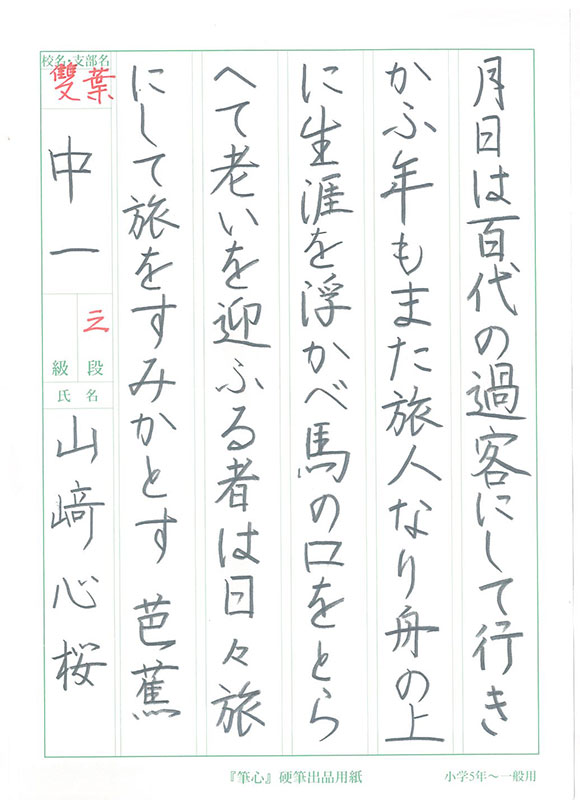 月日は百代の過客にして行き
かふ年もまた旅人なり舟の上
に生涯を浮かべ馬の口をとら
へて老いを迎ふる者は日々旅
にして旅をすみかとす 芭蕉
校名・支部名
雙葉
中一
三
級 段
氏 名
山﨑心桜
『筆心』硬筆出品用紙
小学5年～一般用